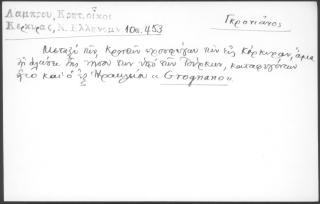 Λάμπρου, Κρητ. οἶκοι
Κερκύρας, Ν. Ἑλληνομν 10ος. 453
Γκρονιάνος
Μεταξὺ τῶν Κρητῶν προσφύγων τῶν εἰς Κέρκυραν, ἅμα
τῇ ἁλώσει τῆς νήσου των ὑπὸ τῶν Τούρκων, καταφυγόντων
ἦτο καὶ ὁ ἐξ Ἡρακλείου « Grognano ».